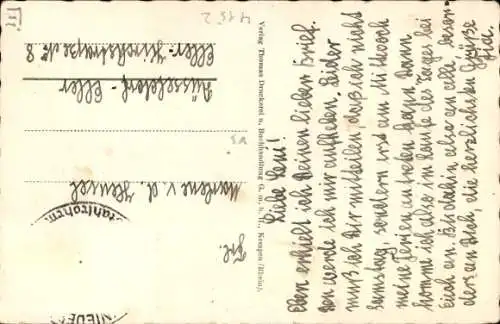 Liebe Leni!
Eben erhielt ich Deinen lieben Brief.
Den werde ich mir aufheben. Leider
muß ich Dir mitteilen, daß ich nicht
Samstag, sondern erst am Mittwoch
meine Ferien antreten kann. Dann
komme ich also im Laufe des Tages bei
Euch an. Bis dahin also an alle, beson-
ders an Dich, die herzlichsten Grüße
Verlag Thomas Druckerei u. Buchhandlung G. m. b. H., Kempen (Rhein).
Frl.
Marlene v. d.
Düsseldorf-Eller
Eller-Kirchstraße № 8
III
NIEDE